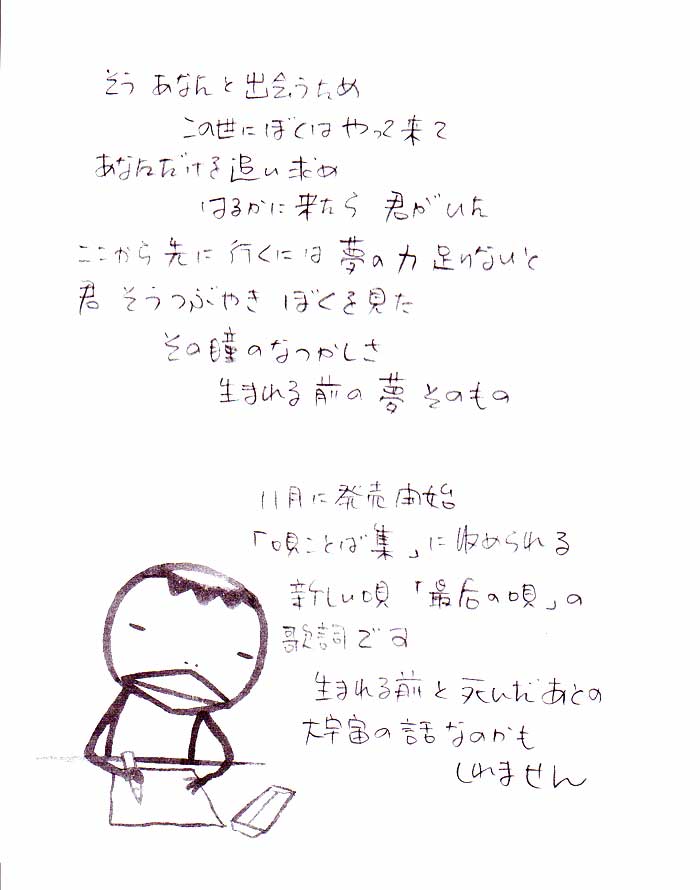 そう あなたと出会うため
この世にぼくは やって来て
あなただけを追い求め
はるかに来たら 君がいた
ここから先に行くには夢の力 足りないと
君 そうつぶやき ぼくを見た
その瞳のなつかしさ
生まれる前の夢 そのもの
11月に発売開始
「唄ことば集」に収められる
新しい唄「最后の唄」の
歌詞です
生まれる前と死んだあとの
大宇宙の話なのかも
しれません